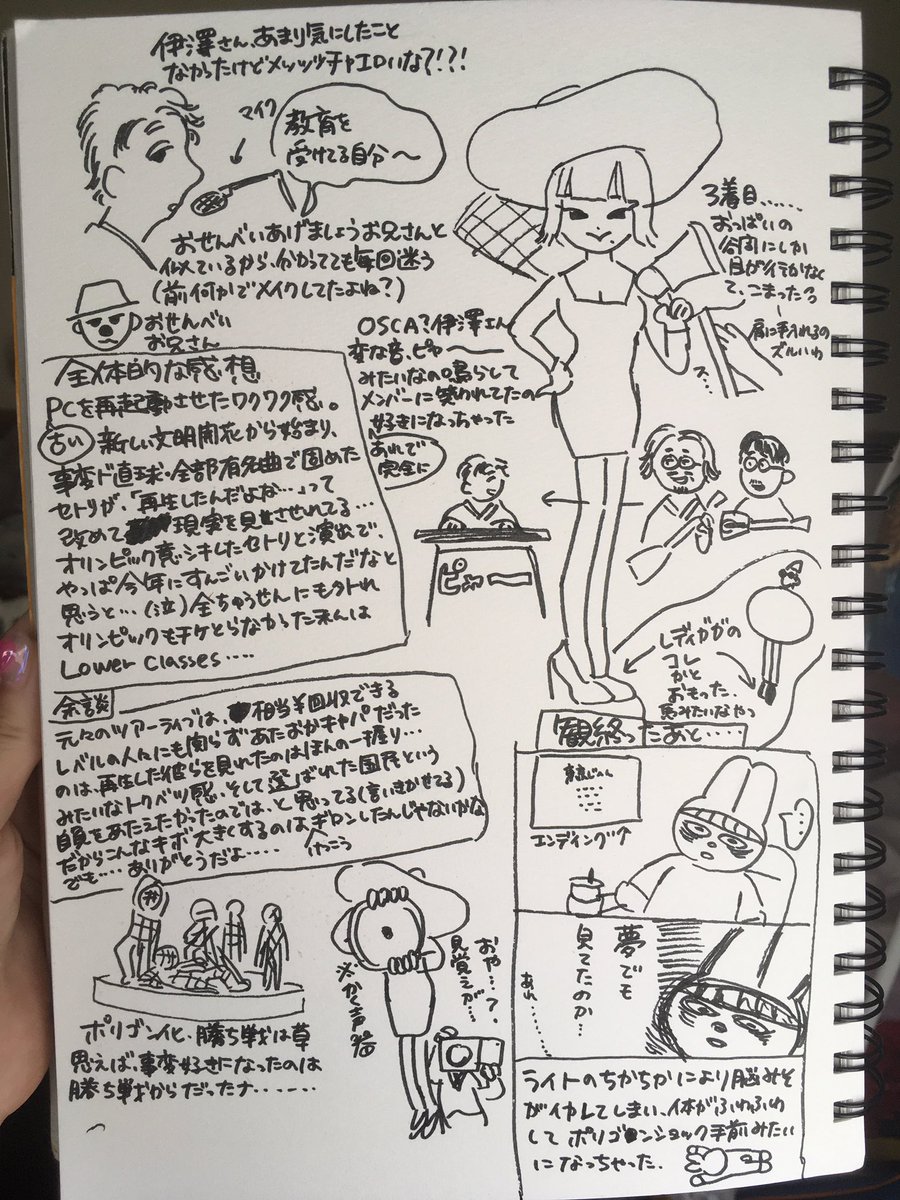 伊澤さん、あまり気にしたこと
なかったけどメッッッチャエロいな?!?!
マイク
教育を
受けてる自分〜
おせんべいあげましょうお兄さんと
似ているから、分かってても毎回迷う
(前何かでメイクしてたよね?)
おせんべい
お兄さん
3着目……
おっぱいの
谷間にしか
目が行かなく
て、こまった
肩に手入れるの
ズルいわ
ス…
OSCA?伊澤さん
変な音、ピャ〜
みたいなの鳴らして
メンバーに笑われてたの
好きになっちゃった
あれで
完全に
ピャー
全体的な感想
PCを再起動させたワクワク感。
古い
新しい文明開花から始まり、
事変ド直球・全部有名曲で固めた
セトリが、「再生したんだよな…」って
改めて 現実を見させられてる…
オリンピック意シキしたセトリと演出で、
やっぱ今年にすんごいかけてたんだなと
思うと…(泣)全ちゅうせんにもハズれ
オリンピックもチケとらなかった私は
Lower Classes....
レディガガの
コレ
かと
おもった.
馬みたいなやつ
余談
元々のツアーライブは、相当¥回収できる
レベルの人々にも関らずあたおかキャパだった
のは、再生した彼らを見れたのはほんの一握り…
みたいなトクベツ感、そして選ばれた国民という
自負をあたえたかったのでは、と思ってる(言いきかせてる)
だからこんなキボ大きくするのはギロンしたんじゃないかな
けっこう
でも…. ありがとうだよ…..
観終ったあと….
エンディング
…
夢でも
見てたのか…
あれ………
おや…?、
見覚えが…
※かく声器
ポリゴンイと、勝ち戦は草
思えば、事変好きになったのは
勝ち戦からだったナ……
ライトのちかちかにより脳みそ
がイカレてしまい、体がふわふわ
して ポリゴンショック手前みたい
になっちゃった.